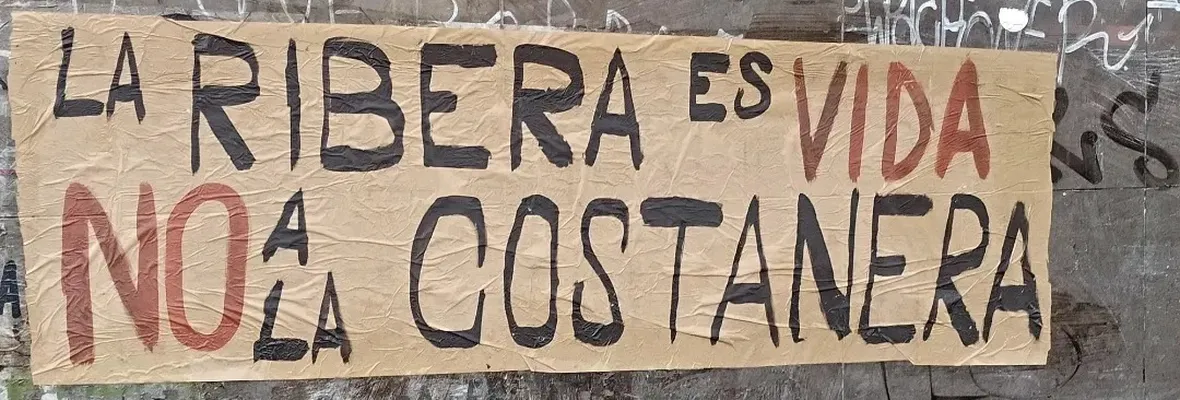 LA RIBERA ES VIDA
NO A LA COSTANERA